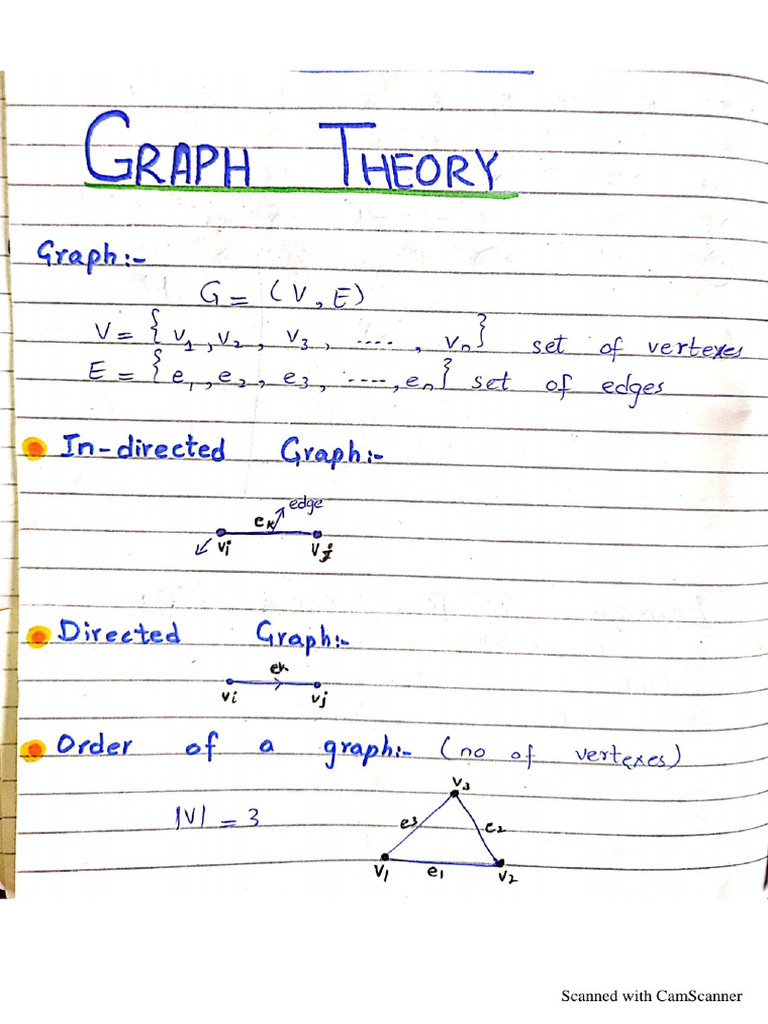 GRAPH THEORY
Graph:-
G = (V, E)
V = { v1, v2, v3, ...., vn} set of vertexes
E = { e1, e2, e3, ...., en} set of edges
In-directed Graph:-
edge
ek
vi vj
Directed Graph:-
ek
vi vj
Order of a graph:- (no of vertexes)
v3
|V| = 3
e3 e2
v1 e1 v2
Scanned with CamScanner